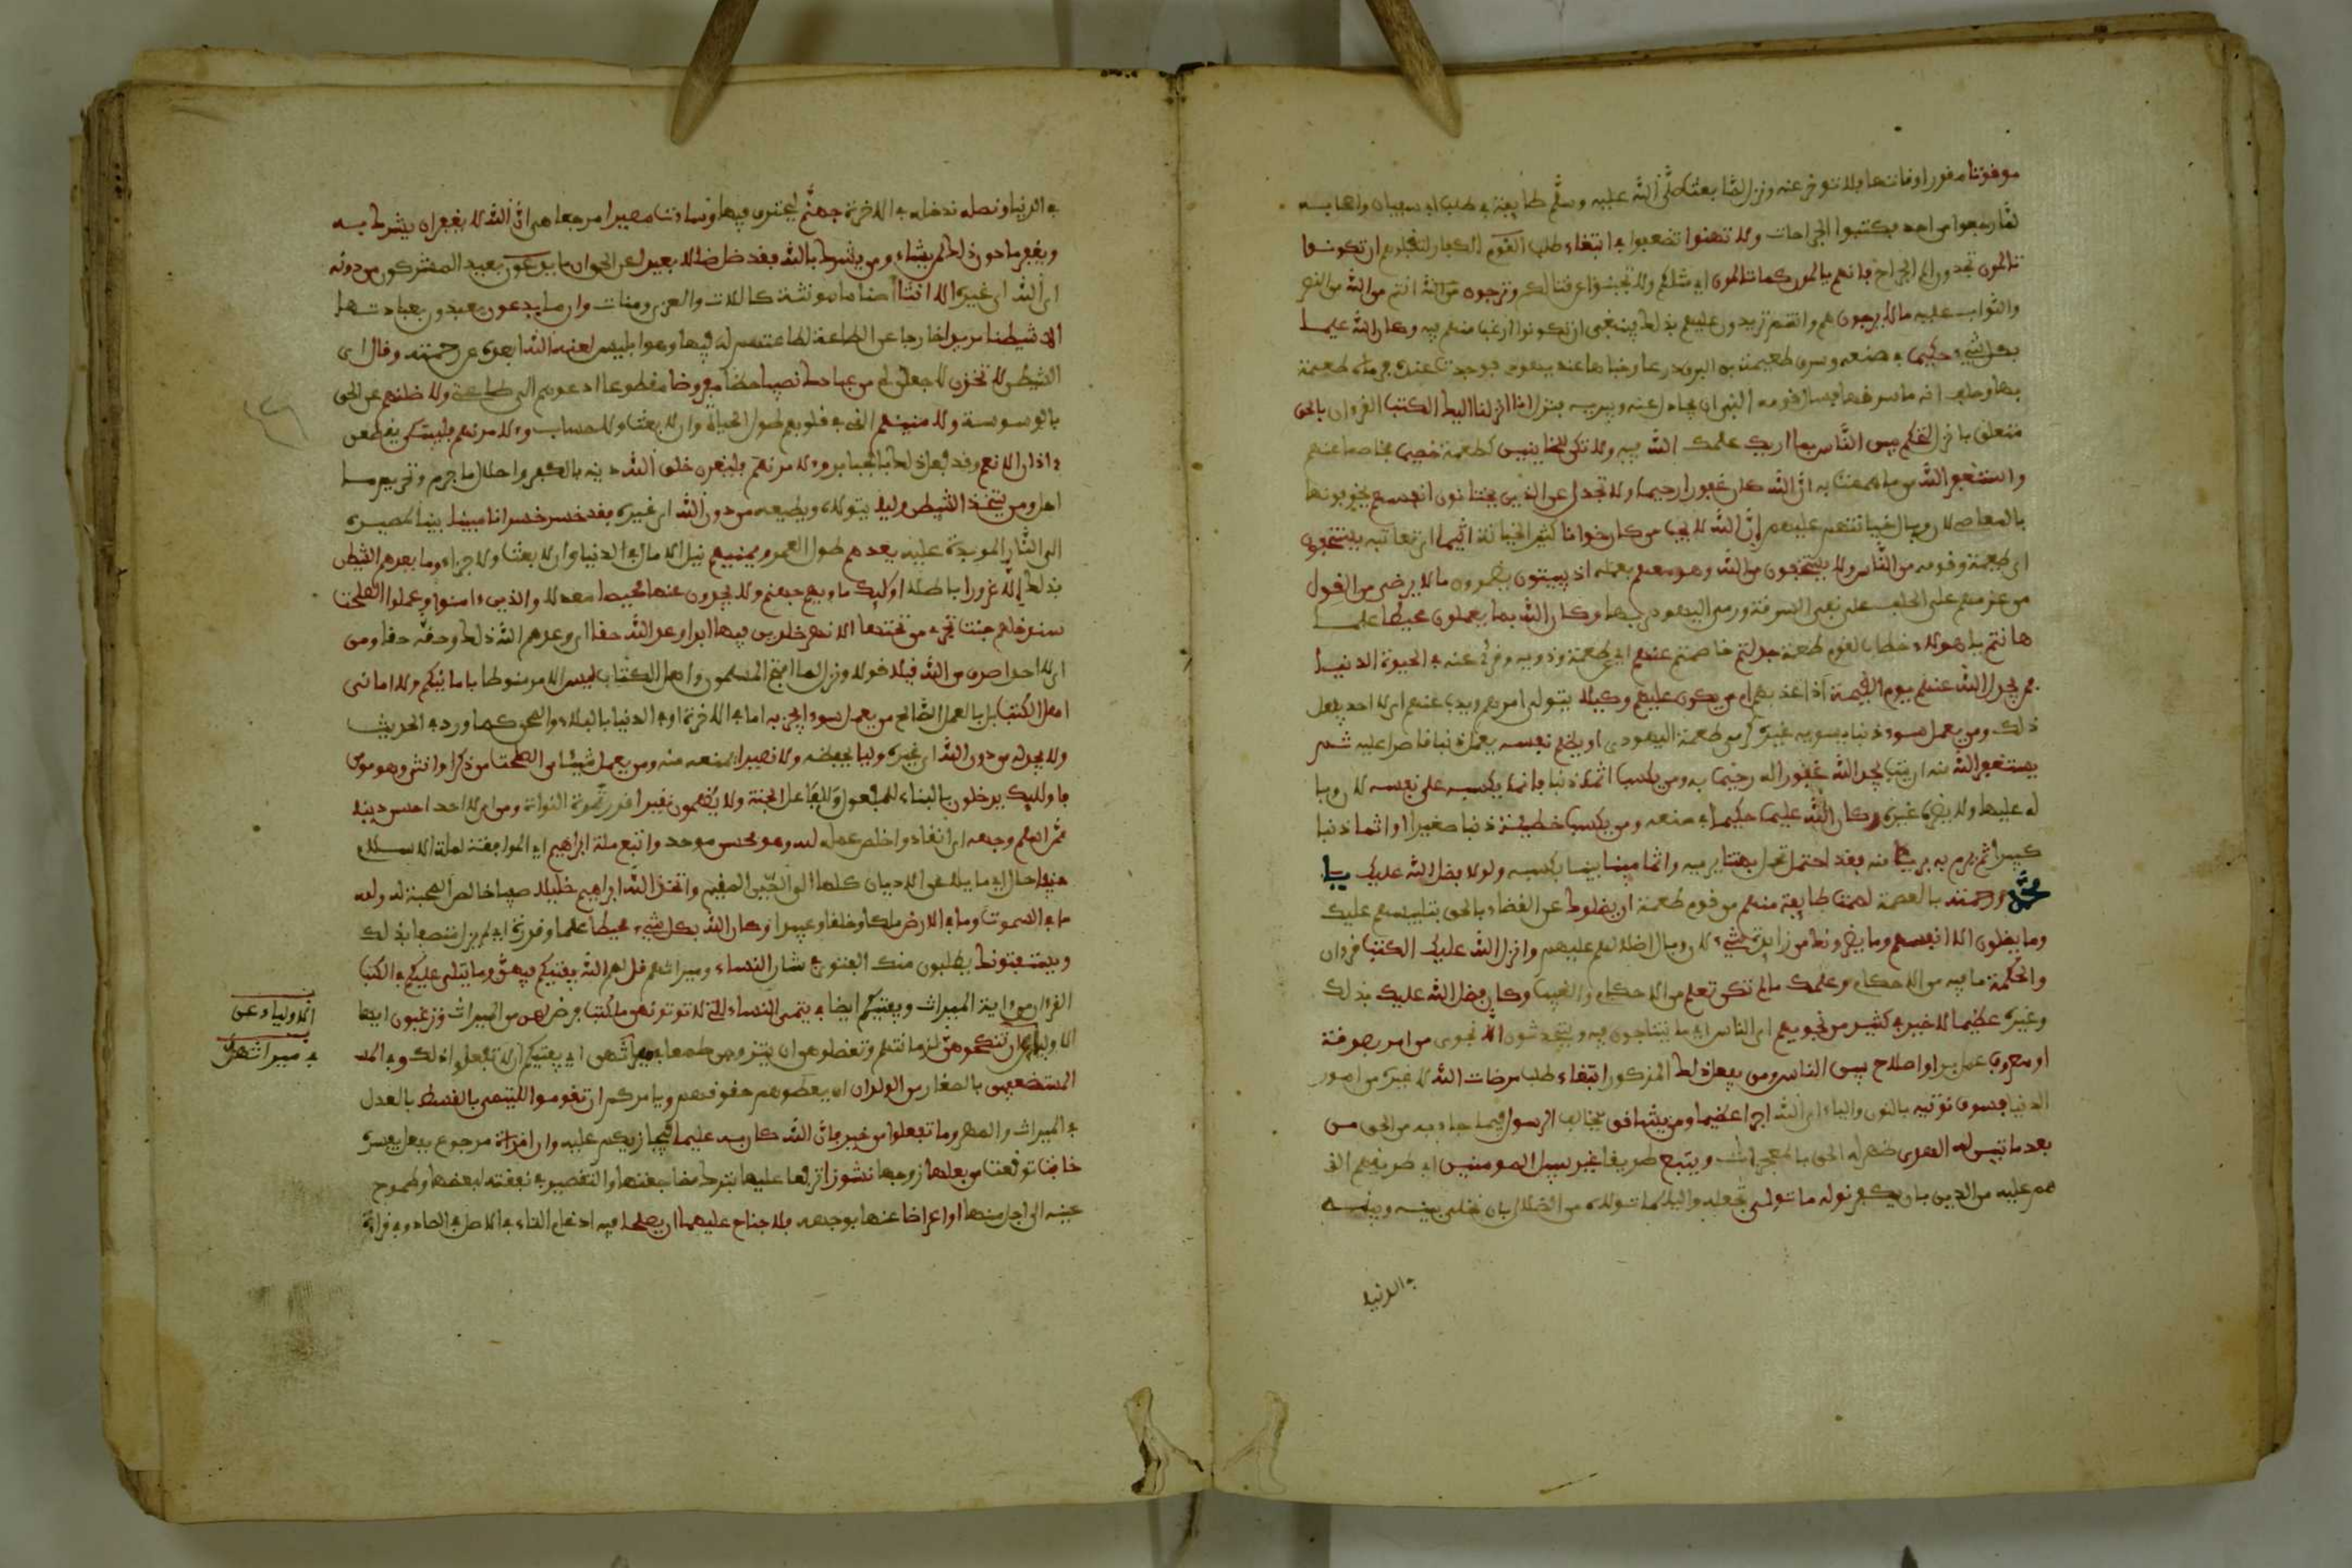 موقوتا مقدرا وقتها فلا تؤخر عنه ونزل لما بعث صلى الله عليه وسلم طايفة في طلب ابي سفيان واصحابه
لما رجعوا من احد فشكوا الجراحات ولا تهنوا تضعفوا في ابتغاء طلب القوم الكفار لتقتلوهم ان تكونوا
تالمون تجدون الم الجراح فانهم يالمون كما تالمون اي مثلكم ولا يجبنوا عن قتالكم وترجون من الله انتم من الله من النصر
والثواب عليه ما لا يرجون هم وانتم تزيدون عليهم بذلك فينبغي ان تكونوا ارغب منهم فيه وكان الله عليما
بكل شيء حكيما في صنعه وسرق طعيمة بن ابيرق درعا وخباها عند يهودي فوجدت عنده فرماه طعيمة
بها وحلف انه ما سرقها فسال قومه النبي ان يجادل عنه ويبريه فنزل انا انزلنا اليك الكتب القران بالحق
متعلق بانزل لتحكم بين الناس بما اريك علمك الله فيه ولا تكن للخاينين كطعمة خصيما مخاصما عنهم
واستغفر الله من ما هممت به ان الله كان غفورا رحيما ولا تجدل عن الذين يختانون انفسهم يخونونها
بالمعاصي لان وبال خيانتهم عليهم ان الله لا يحب من كان خوانا كثير الخيانة اثيما اي يعاقبه يستخفون
اي طعمة وقومه من الناس ولا يستخفون من الله وهو معهم بعلمه اذ يبيتون يضمرون ما لا يرضى من القول
من عزمهم على الحلف على نفي السرقة ورمي اليهودي بها وكان الله بما يعملون محيطا علما
هانتم يا هولاء خطاب لقوم طعمة جدلتم خاصمتم عنهم اي عن طعمة وذويه وقرئ عنه في الحيوة الدنيا
فمن يجدل الله عنهم يوم القيمة اذا عذبهم ام من يكون عليهم وكيلا يتولى امرهم ويذب عنهم اي لا احد يفعل
ذلك ومن يعمل سوءا ذنبا يسوء به غيره كرمي طعمة اليهودي او يظلم نفسه بعمل ذنب قاصرا عليه ثم
يستغفر الله منه اي يتب يجد الله غفورا له رحيما به ومن يكسب اثما ذنبا فانما يكسبه على نفسه لان وبا
له عليها ولا يضر غيره وكان الله عليما حكيما في صنعه ومن يكسب خطيئة ذنبا صغيرا او اثما ذنبا
كبيرا ثم يرم به بريئا منه فقد احتمل تحمل بهتنا برميه واثما مبينا بينا بكسبه ولولا فضل الله عليك يا
محمد ورحمته بالعصمة لهمت طايفة منهم من قوم طعمة ان يضلوك عن القضاء بالحق بتلبيسهم عليك
وما يضلون الا انفسهم وما يضرونك من زايدة شيء لان وبال اضلالهم عليهم وانزل الله عليك الكتب القران
والحكمة ما فيه من الاحكام وعلمك ما لم تكن تعلم من الاحكام والغيب وكان فضل الله عليك بذلك
وغيره عظيما لا خير في كثير من نجويهم اي الناس اي ما يتناجون فيه ويتحدثون الا نجوى من امر بصدقة
او معروف عمل بر او اصلاح بين الناس ومن يفعل ذلك المذكور ابتغاء طلب مرضات الله لا غيره من امور
الدنيا فسوف نوتيه بالنون والياء اي الله اجرا عظيما ومن يشاقق يخالف الرسول فيما جاء به من الحق من
بعد ما تبين له الهدى ظهر له الحق بالمعجزات ويتبع طريقا غير سبيل المومنين اي طريقهم الذي
هم عليه من الدين بان يكفر نوله ما تولى نجعله واليا لما تولاه من الضلال بان نخلي بينه وبينه
في الدنيا
في الدنيا ونصله ندخله في الاخرة جهنم ليحترق فيها وساءت مصيرا مرجعا هي ان الله لا يغفر ان يشرك به
ويغفر ما دون ذلك لمن يشاء ومن يشرك بالله فقد ضل ضلالا بعيدا عن الحق ان ما يدعون يعبد المشركون من دونه
اي الله اي غيره الا انثا اصناما مونثة كاللات والعزى ومنات وان ما يدعون يعبدون بعبادتها
الا شيطنا مريدا خارجا عن الطاعة لطاعتهم له فيها وهو ابليس لعنه الله ابعده عن رحمته وقال اي
الشيطن لاتخذن لاجعلن لي من عبادك نصيبا حظا مفروضا مقطوعا ادعوهم الى طاعتي ولاضلنهم عن الحق
بالوسوسة ولامنينهم القي في قلوبهم طول الحياة وان لا بعث ولا حساب ولامرنهم فليبتكن يقطعن
ءاذان الانعم وقد فعل ذلك بالبحاير ولامرنهم فليغيرن خلق الله دينه بالكفر واحلال ما حرم وتحريم ما
احل ومن يتخذ الشيطن وليا يتولاه ويطيعه من دون الله اي غيره فقد خسر خسرانا مبينا بينا لمصيره
الى النار الموبدة عليه يعدهم طول العمر ويمنيهم نيل الامال في الدنيا وان لا بعث ولا جزاء وما يعدهم الشيطن
بذلك الا غرورا باطلا اوليك ماويهم جهنم ولا يجدون عنها محيصا معدلا والذين ءامنوا وعملوا الصلحت
سندخلهم جنت تجري من تحتها الانهر خلدين فيها ابدا وعد الله حقا اي وعدهم الله ذلك وحقه حقا ومن
اي لا احد اصدق من الله قيلا قولا ونزل لما افتخر المسلمون واهل الكتاب ليس الامر منوطا بامانيكم ولا اماني
اهل الكتب بل بالعمل الصالح من يعمل سوءا يجز به اما في الاخرة او في الدنيا بالبلاء والمحن كما ورد في الحديث
ولا يجد له من دون الله اي غيره وليا يحفظه ولا نصيرا يمنعه منه ومن يعمل شيئا من الصلحت من ذكر او انثى وهو مومن
فاوليك يدخلون بالبناء للمفعول وللفاعل الجنة ولا يظلمون نقيرا قدر نقرة النواة ومن اي لا احد احسن دينا
ممن اسلم وجهه اي انقاد واخلص عمله لله وهو محسن موحد واتبع ملة ابراهيم اي الموافقة لملة الاسلام
حنيفا حال اي مايلا عن الاديان كلها الى الدين القيم واتخذ الله ابراهيم خليلا صفيا خالص المحبة له ولله
ما في السموت وما في الارض ملكا وخلقا وعبيدا وكان الله بكل شيء محيطا علما وقدرة اي لم يزل متصفا بذلك
ويستفتونك يطلبون منك الفتوى في شان النساء وميراثهم قل لهم الله يفتيكم فيهن وما يتلى عليكم في الكتب
القران من ءاية الميراث ويفتيكم ايضا في يتمى النساء التي لا توتونهن ما كتب فرض لهن من الميراث وترغبون ايها
الاولياء ان تنكحوهن لدمامتهم وتعضلوهن ان يتزوجن طمعا في ميراثهن اي يفتيكم ان لا تفعلوا ذلك وفي الم
المستضعفين بالصغار من الولدان ان يعطوهم حقوقهم ويامركم ان تقوموا لليتمى بالقسط بالعدل
في الميراث والمهر وما تفعلوا من خير فان الله كان به عليما فيجازيكم عليه وان امراة مرفوع بفعل يفسره
خافت توقعت من بعلها زوجها نشوزا ترفعا عليها بترك مضاجعتها والتقصير في نفقته لبغضها وطموح
عينه الى اجمل منها او اعراضا عنها بوجهه فلا جناح عليهما ان يصلحا فيه ادغام التاء في الاصل في الصاد وفي قراءة
الاولياء عن
في ميراثهن